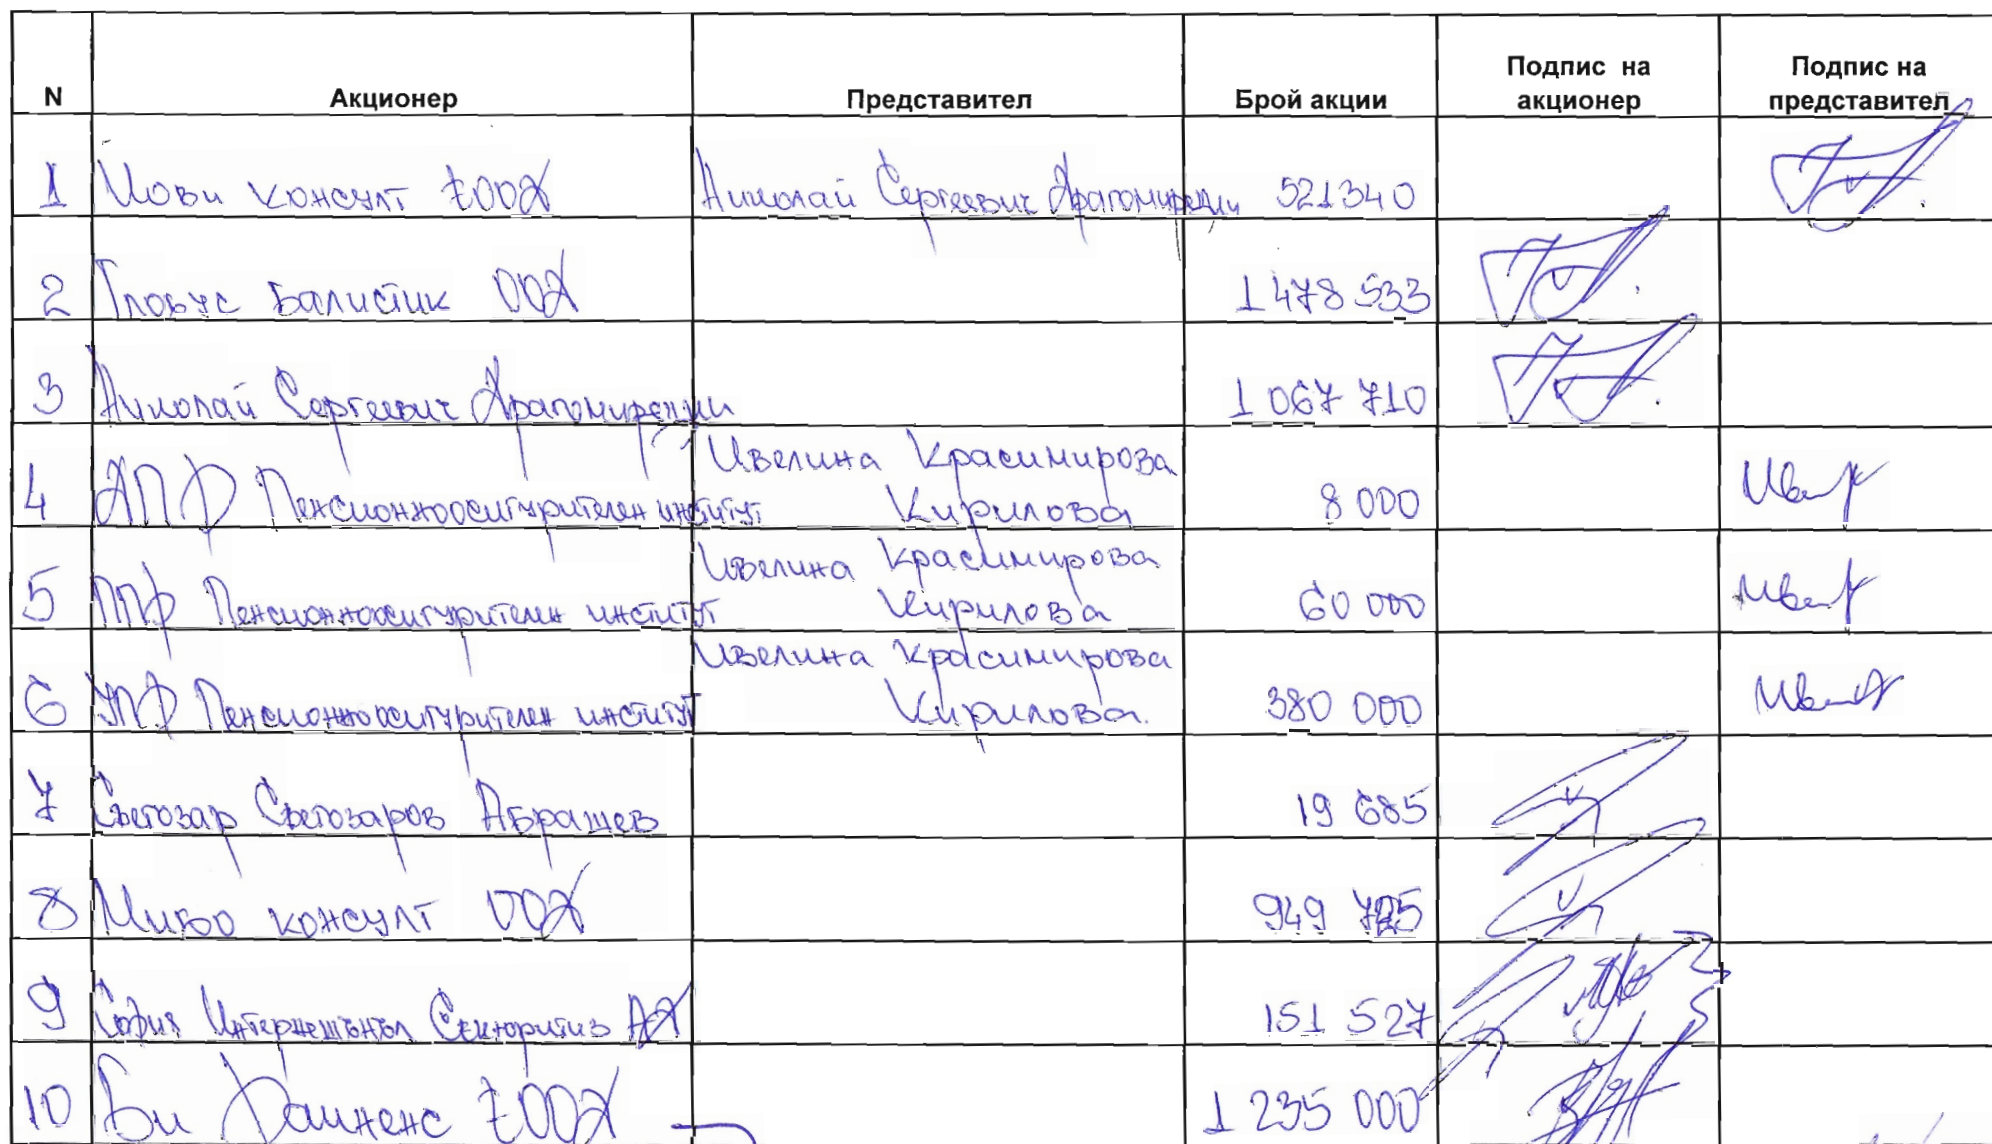 N Акционер Представител Брой акции Подпис на акционер Подпис на представител
1 Йови консулт ЕООД Николай Сергеевич Драгомирецки 521340
2 Глобус Балистик ООД 1 478 533
3 Николай Сергеевич Драгомирецки 1 067 710
4 ДПФ Пенсионноосигурителен институт Ивелина Красимирова Кирилова 8 000
5 ППФ Пенсионноосигурителен институт Ивелина Красимирова Кирилова 60 000
6 УПФ Пенсионноосигурителен институт Ивелина Красимирова Кирилова. 380 000
7 Светозар Светозаров Абрашев 19 685
8 консулт ООД 949
9 София Интернешънъл Секюритиз АД 151 527
10 Ви Файненс ЕООД 1 235 000